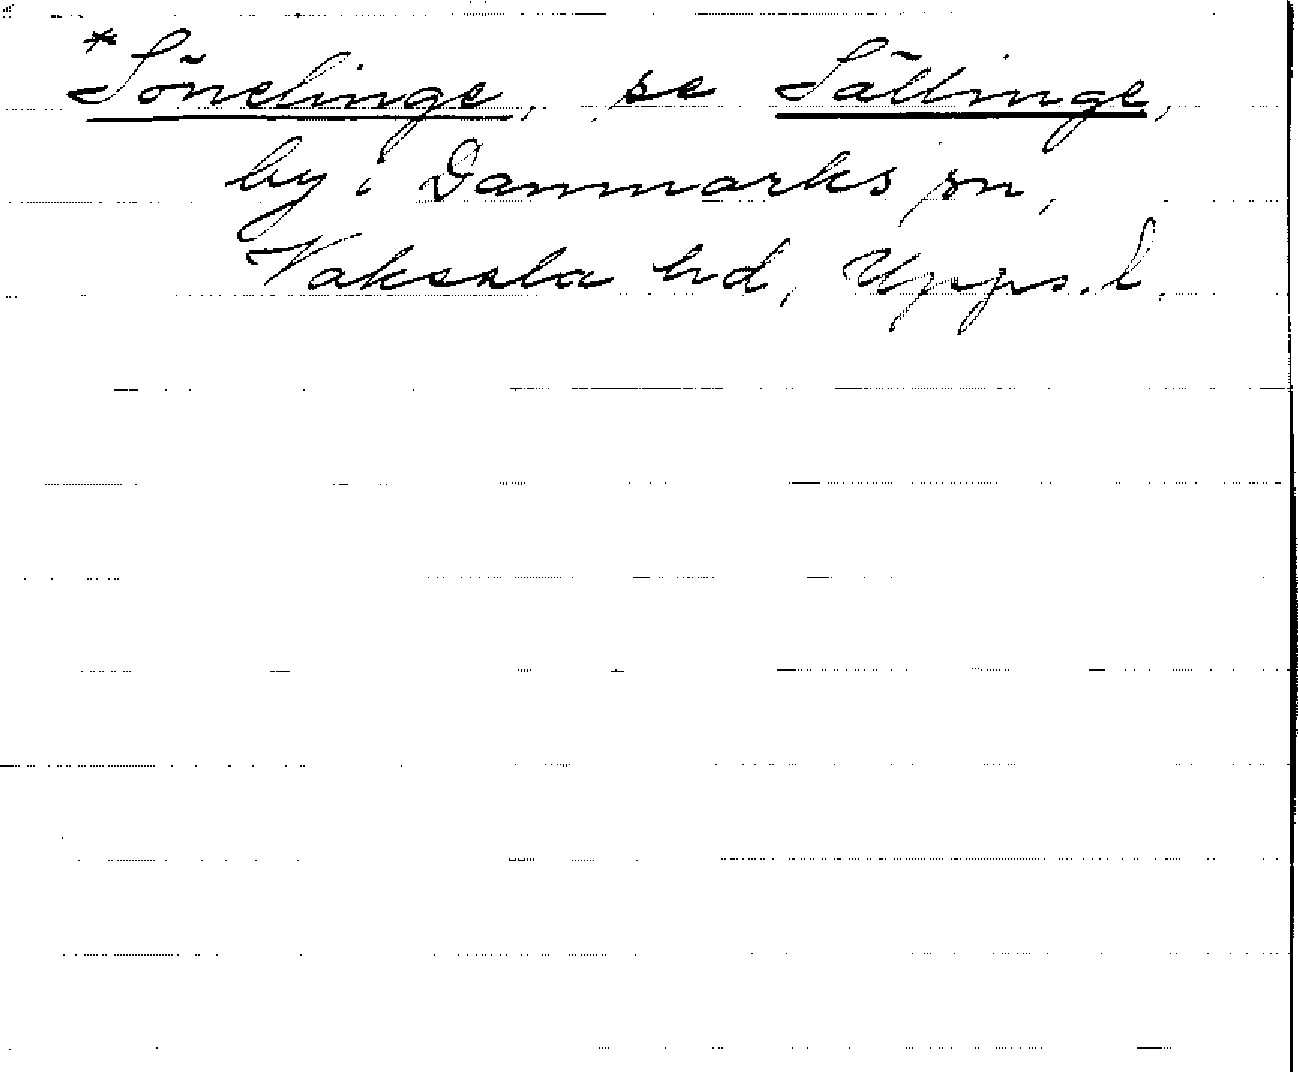 *Sönelinge, se Sällinge,
by i Danmarks sn,
Vaksala hd, Upps. l.